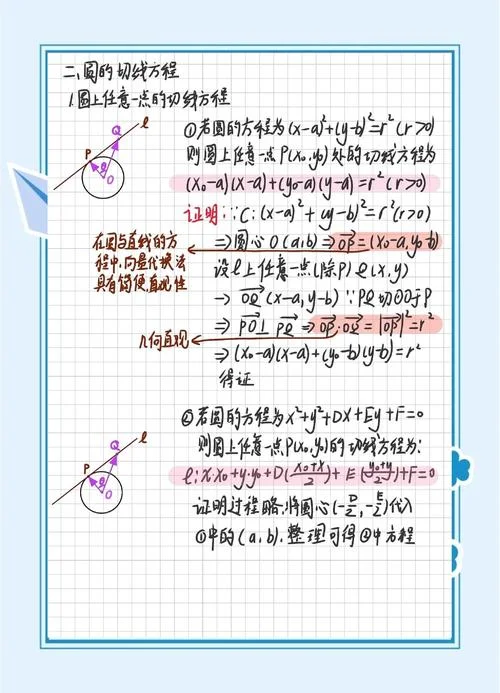 二、圆的切线方程
1.圆上任意一点的切线方程
①若圆的方程为(x-a)²+(y-b)²=r²(r>0)
则圆上任意一点P(x₀,y₀)处的切线方程为
(x₀-a)(x-a)+(y₀-a)(y-a)=r²(r>0)
证明:∵C:(x-a)²+(y-b)²=r²(r>0)
⇒圆心O(a,b)⇒OP=(x₀-a,y₀-b)
设l上任意一点(除P)Q(x,y)
⇒OQ(x-a,y-b)∵PQ切⊙O于P
⇒PO⊥PQ⇒OP·OQ=|OP|²=r²
⇒(x₀-a)(x-a)+(y₀-b)(y-b)=r²
得证
在圆与直线的方
程中,向量代换法
具有简便直观性
几何直观
P
Q
l
O
②若圆的方程为x²+y²+Dx+Ey+F=0
则圆上任意一点P(x₀,y₀)的切线方程为:
l:x·x₀+y·y₀+D(x₀+x/2)+E(y₀+y/2)+F=0
证明过程略,将圆心(-D/2,-E/2)代入
①中的(a,b),整理可得②中方程
P
Q
l
O